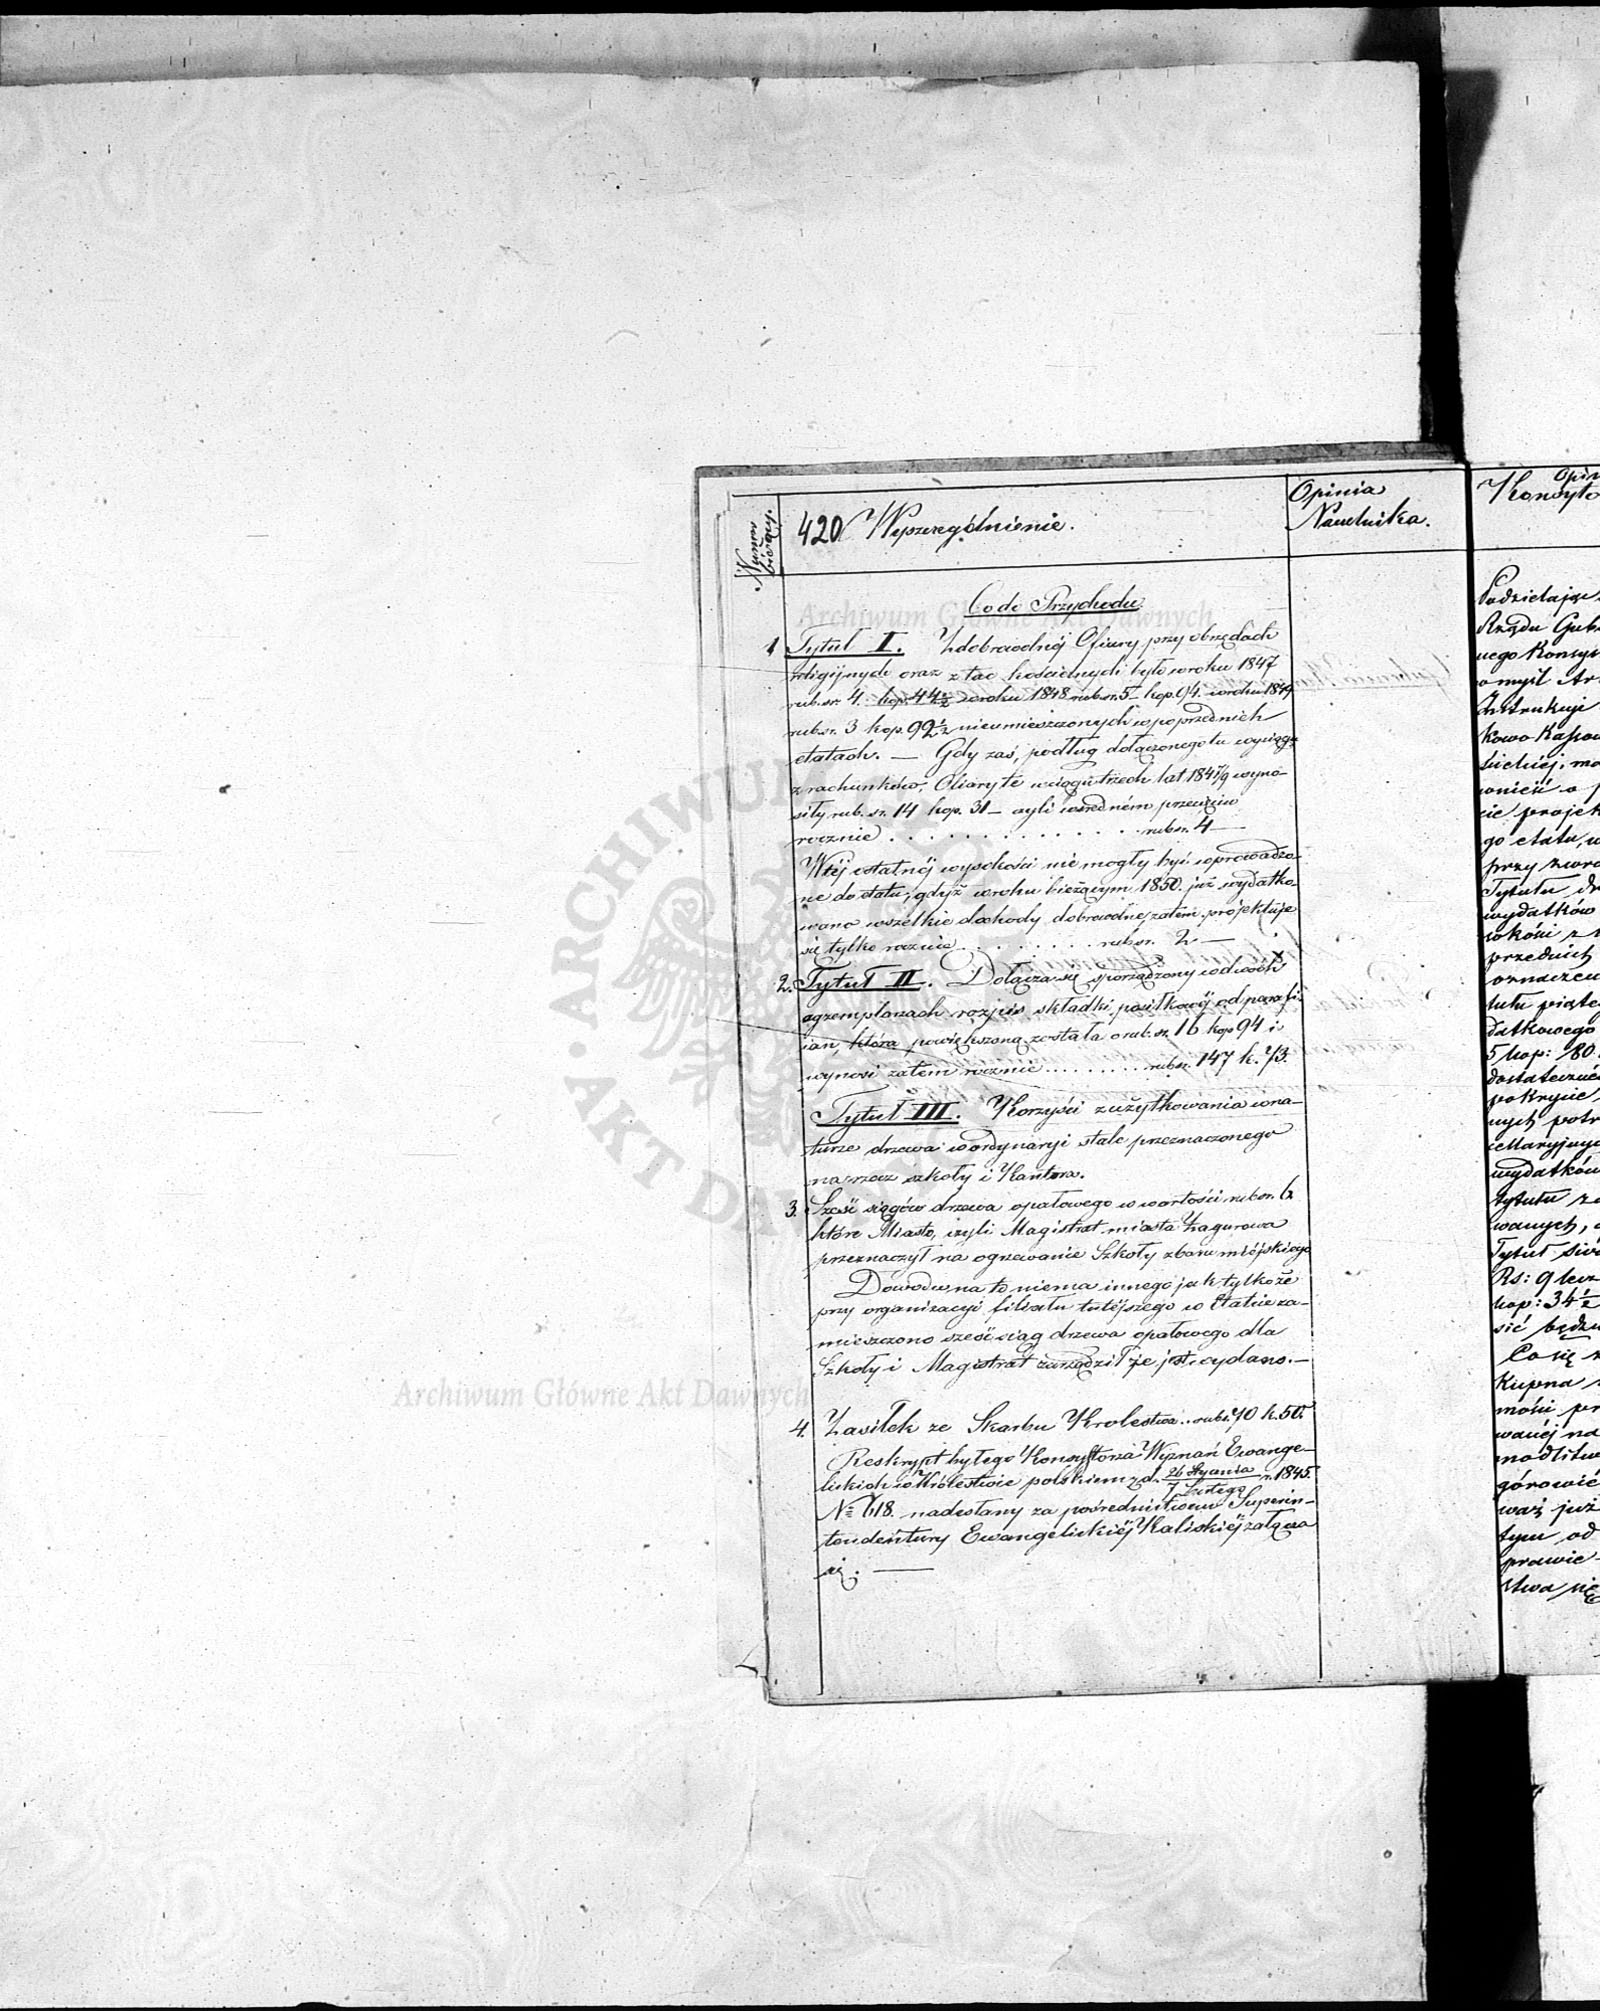 Numer bieżący.
420 Wyszczególnienie.
Opinia
Naczelnika.
Co do Przychodu.
1 Tytuł I. Z dobrowolnéj Ofiary przy obrzędach
religijnych oraz z tac kościelnych było w roku 1847
rub. sr. 4. kop. 44½ w roku 1848 rub. sr. 5 kop. 94. w roku 1849
rub. sr. 3 kop. 92½ nieumieszczonych w poprzednich
etatach. — Gdy zaś, podług dołączonego tu wyciągu
z rachunków, Ofiary te w ciągu trzech lat 1847/9 wyno-
siły rub. sr. 14 kop. 31 — czyli w średném przecięciu
rocznie . . . . . . . . . . . . . rub. sr. 4 —
W téj ostatnéj wysokości nie mogły być wprowadzo-
ne do etatu, gdyż w roku bieżącym 1850. już wydatko-
wano wszelkie dochody dobrowolne, zatem projektuje
się tylko rocznie . . . . . . . . rub. sr. 2 —
2. Tytuł II. Dołącza się sporządzony w dwóch
egzemplarzach rozpis składki posiłkowéj od parafi-
ian, która powiększoną została o rub. sr. 16 kop 94 i
wynosi zatem rocznie . . . . . . . . rub. sr. 147 k. 73.
Tytuł III. Korzyści z użytkowania w na-
turze drzewa i ordynaryi stale przeznaczonego
na rzecz szkoły i Kantora.
3. Sześć siągów drzewa opałowego w wartości rub. sr. 6
które Miasto, czyli Magistrat miasta Zagurowa
przeznaczył na ogrzewanie Szkoły zboru miéjskiego
Dowodu na to niema innego jak tylko że
przy organizacyi filiału tutéjszego w Etacie za-
mieszczono sześć siąg drzewa opałowego dla
Szkoły i Magistrat zarządził że jest wydano. —
4. Zasiłek ze Skarbu Krolestwa . . rub. sr. 70 k. 50.
Reskrypt byłego Konsystorza Wyznań Ewange-
lickich w Królestwie polskiem z d. 26 Stycznia / 7 Lutego r. 1845.
№ 618. nadesłany za pośrednictwem Superin-
tendentury Ewangelickiéj Kaliskiéj załącza
się. —
Opin
Konsyto
Podzielając
Rządu Gub
nego Konsys
Instrukcji
kowo Kassow
go etatu, w
przy zwro
Tytułu dr
wydatków
przednich
oznaczen
tułu piąte
datkowego
5 kop: 80.
dostateczne
pokrycie,
nych potr
wydatków
tytułu za
wanych, a
Rs: 9 lecz
kop: 34½
sić będzie
Co się
Kupna
waż już
tym od
prawie
stwa się
Archiwum Główne Akt Dawnych
Archiwum Główne Akt Dawnych
ARCHIWUM GŁÓWNE AKT DAWNYCH